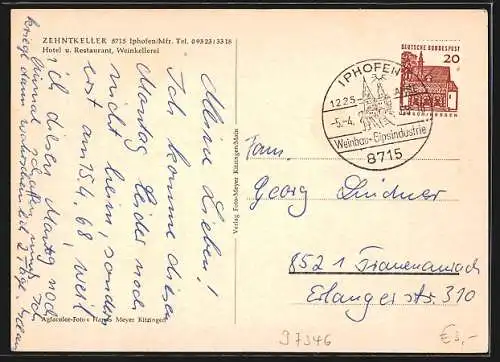 ZEHNTKELLER 8715 Iphofen/Mfr. Tel. 09323/3318
Hotel u. Restaurant, Weinkellerei
Meine Lieben!
Ich komme diesen
Montag leider noch
nicht heim, sondern
erst am 15.4.68 weil
ich diesen Montag noch
einmal
kriegt dann 2 Tage.
Agfacolor-Fotos Hanns Meyer Kitzingen
Verlag Foto-Meyer Kitzingen/Main
IPHOFEN
12.25
-5.-4.
Weinbau-Gipsindustrie
8715
DEUTSCHE BUNDESPOST
20
Fam.
Georg Lindner
8521 Frauenaurach
Erlanger str. 310
97346
€3,-